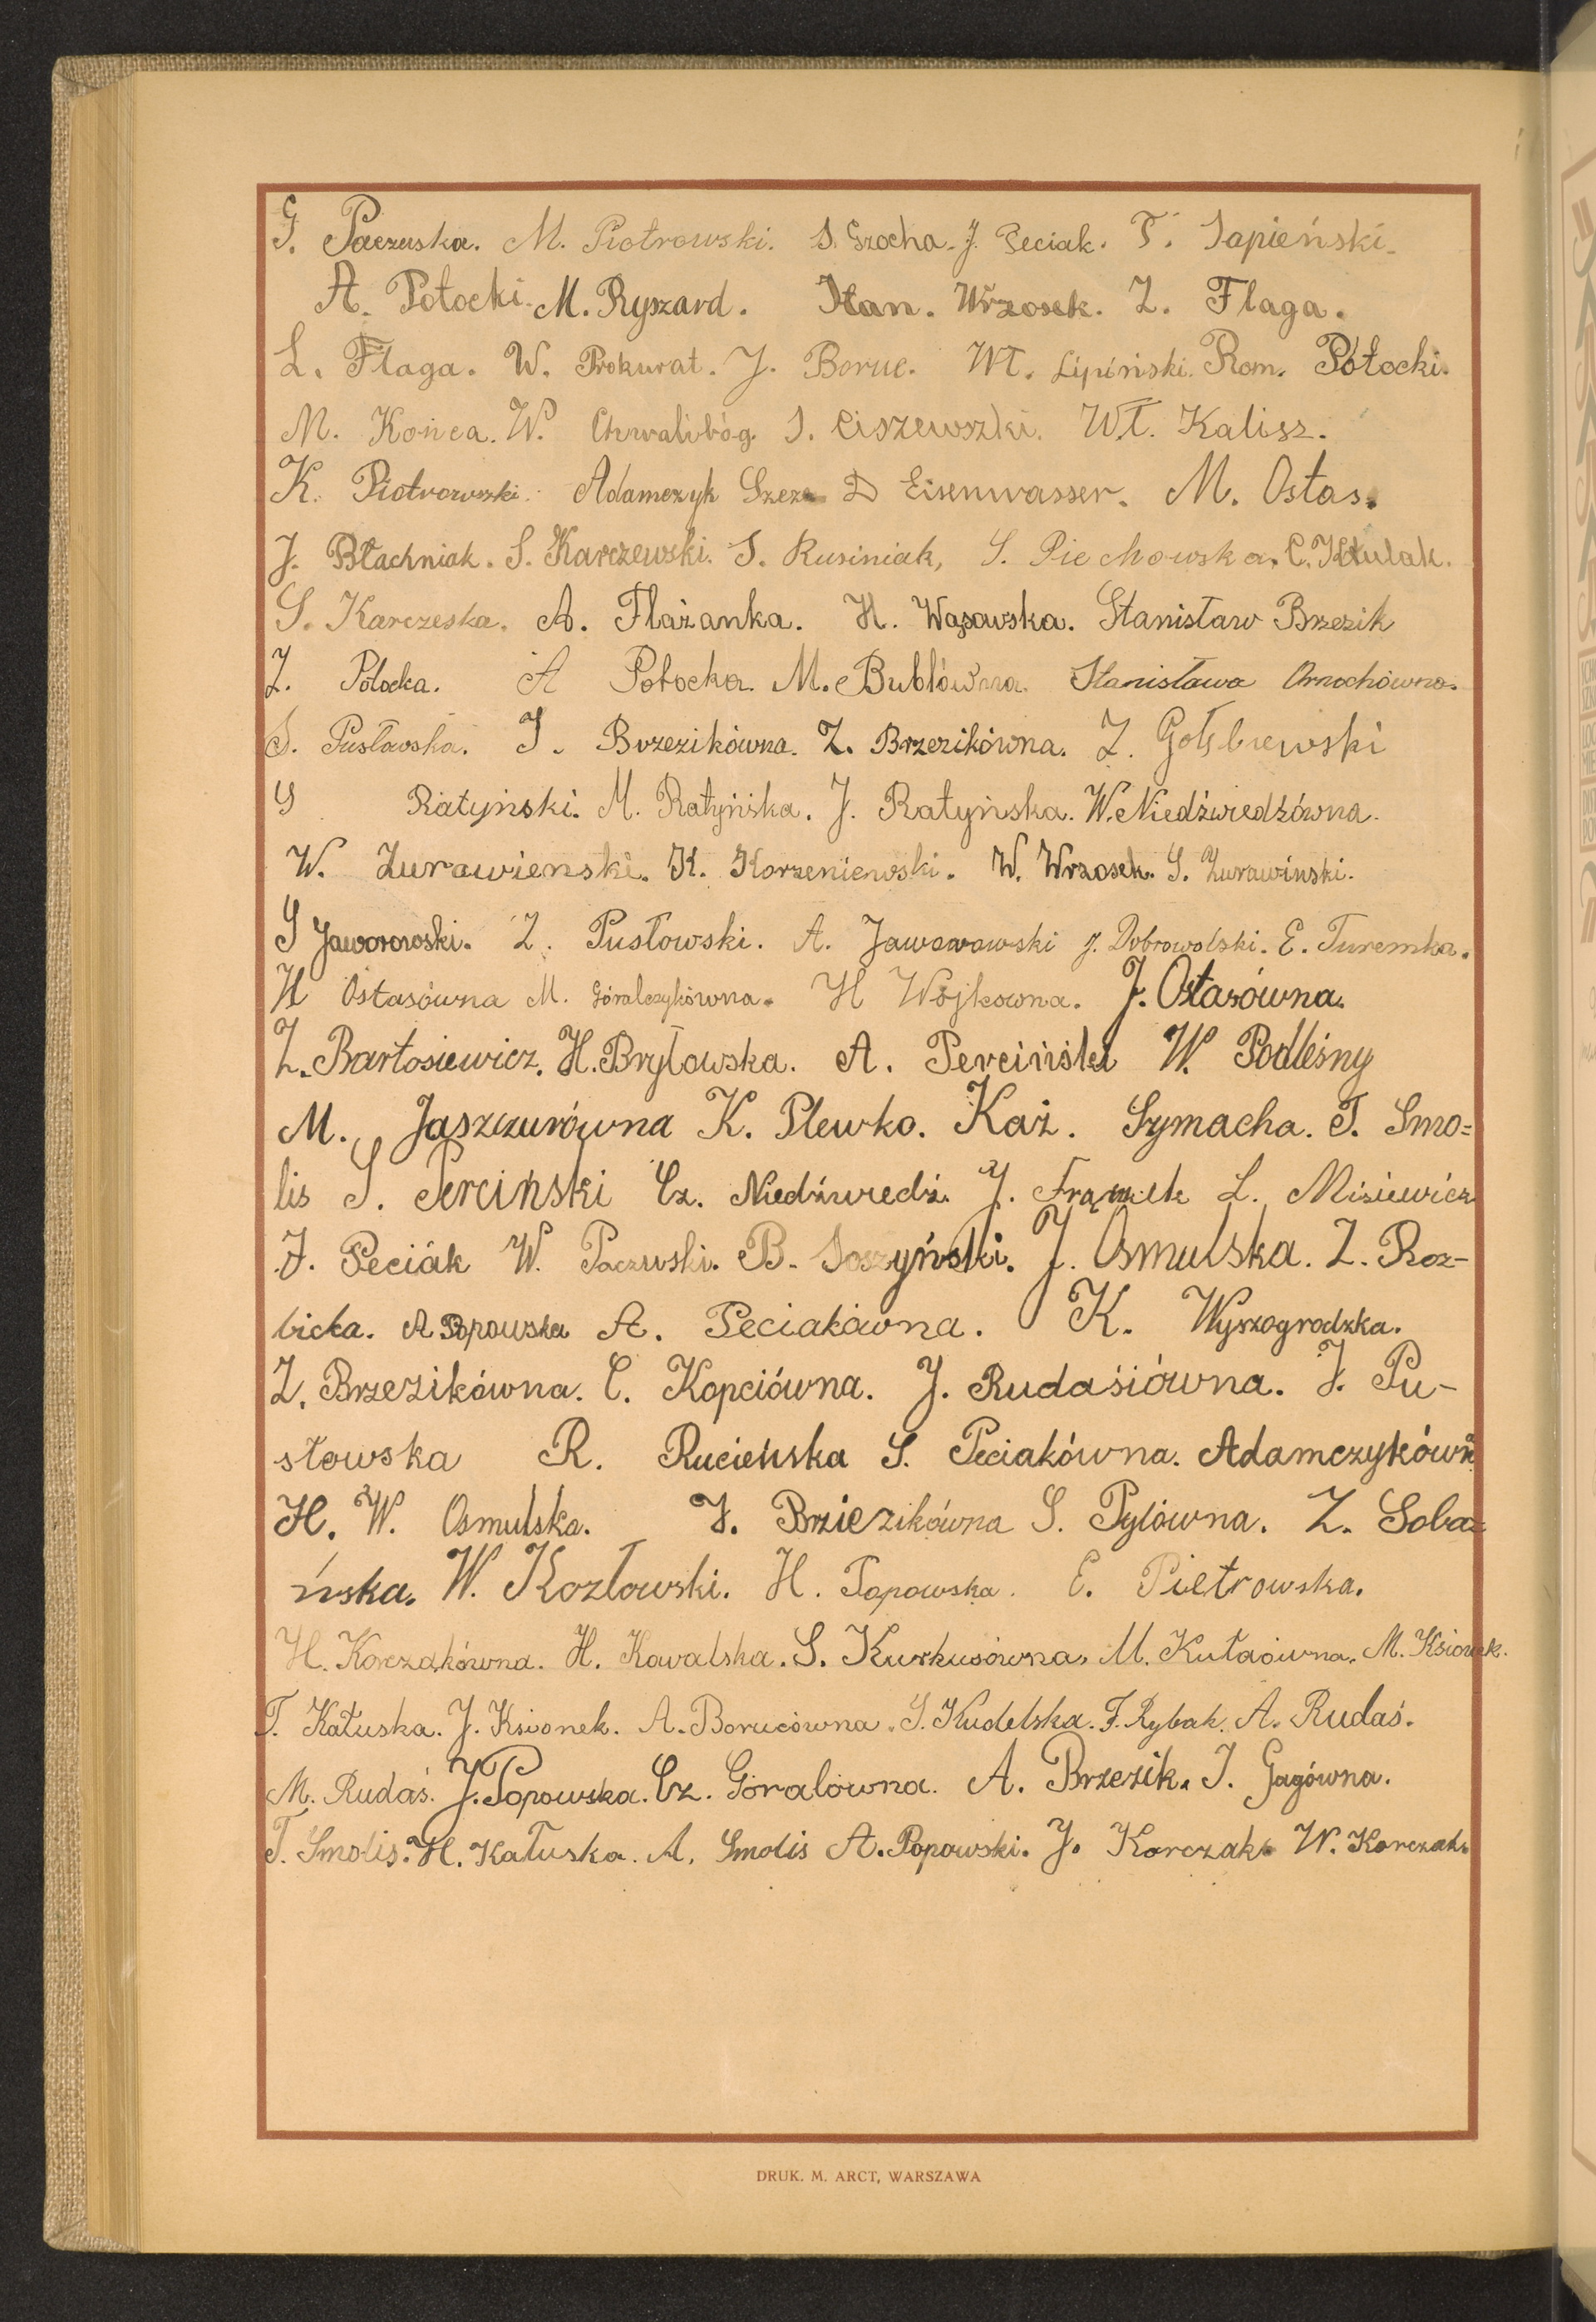 G. Paczuska. M. Piotrowski. S. Grocha. J. Peciak. T. Sapieński.
A. Potocki. M. Ryszard. Stan. Wrzosek. Z. Flaga.
L. Flaga. W. Prokurat. J. Boruc. Wł. Lipiński. Rom. Potocki.
M. Końca. W. Chwalibóg. S. Ciszewszki. Wł. Kalisz.
K. Piotrowski. Adamczyk Szcze D Eisenwasser. M. Ostas.
J. Błachniak. S. Karczewski. S. Rusiniak, S. Piechowska. C.
S. Karczeska. A. Flażanka. H. Wąsowska. Stanisław Brzezik
Z. Potocka. A Potocka. M. Bublówna. Stanisława
S. Pusłavska. J. Brzezikówna. Z. Brzezikówna. Z. Gołębiewski
S Ratyński. M. Ratyńska. J. Ratyńska. W. Niedźwiedzówna.
W. Żurawienski. K. Korzeniewski. W. Wrzosek. S. Żurawinski.
S Jaworowski. Z. Pusłowski. A. Jaworowski J. Dobrowolski. E. Turemka.
H Ostasówna M. Góralczykówna. H Wójkowna. J. Ostasówna.
Z. Bartosiewicz. H. Bryłowska. A. Perciński W. Podleśny
M. Jaszczurówna K. Plewko. Kaź. Symacha. T. Smo=
lis S. Perciński Cz. Niedźwiedź. J. Frączek L. Misiewicz
J. Peciak W. Paczuski. B. Soszyński. J. Osmulska. Z. Roz-
bicka. A Popowska A. Peciakówna. K. Wyszogrodzka.
Z. Brzezikówna. C. Kopciówna. J. Rudasiówna. J. Pu-
słowska R. Rucieńska S. Peciakówna. Adamczykówna
H. W. Osmulska. J. Brziezikówna S. Pylówna. Z. Soba=
ńska. W. Kozłowski. H. Popowska. E. Pietrowska.
H. Korczakówna. H. Kowalska. S. Kurkusówna. M. Kutaówna. M. Ksionek.
T. Kałuska. J. Ksionek. A. Borucówna. S. Kudelska. F. Rybak. A. Rudaś.
M. Rudaś. J. Popowska. Cz. Góralówna. A. Brzezik. J. Gagówna.
T. Smolis. H. Kałuska. A. Smolis A. Popowski. J. Korczak. W. Korczak.
DRUK. M. ARCT, WARSZAWA